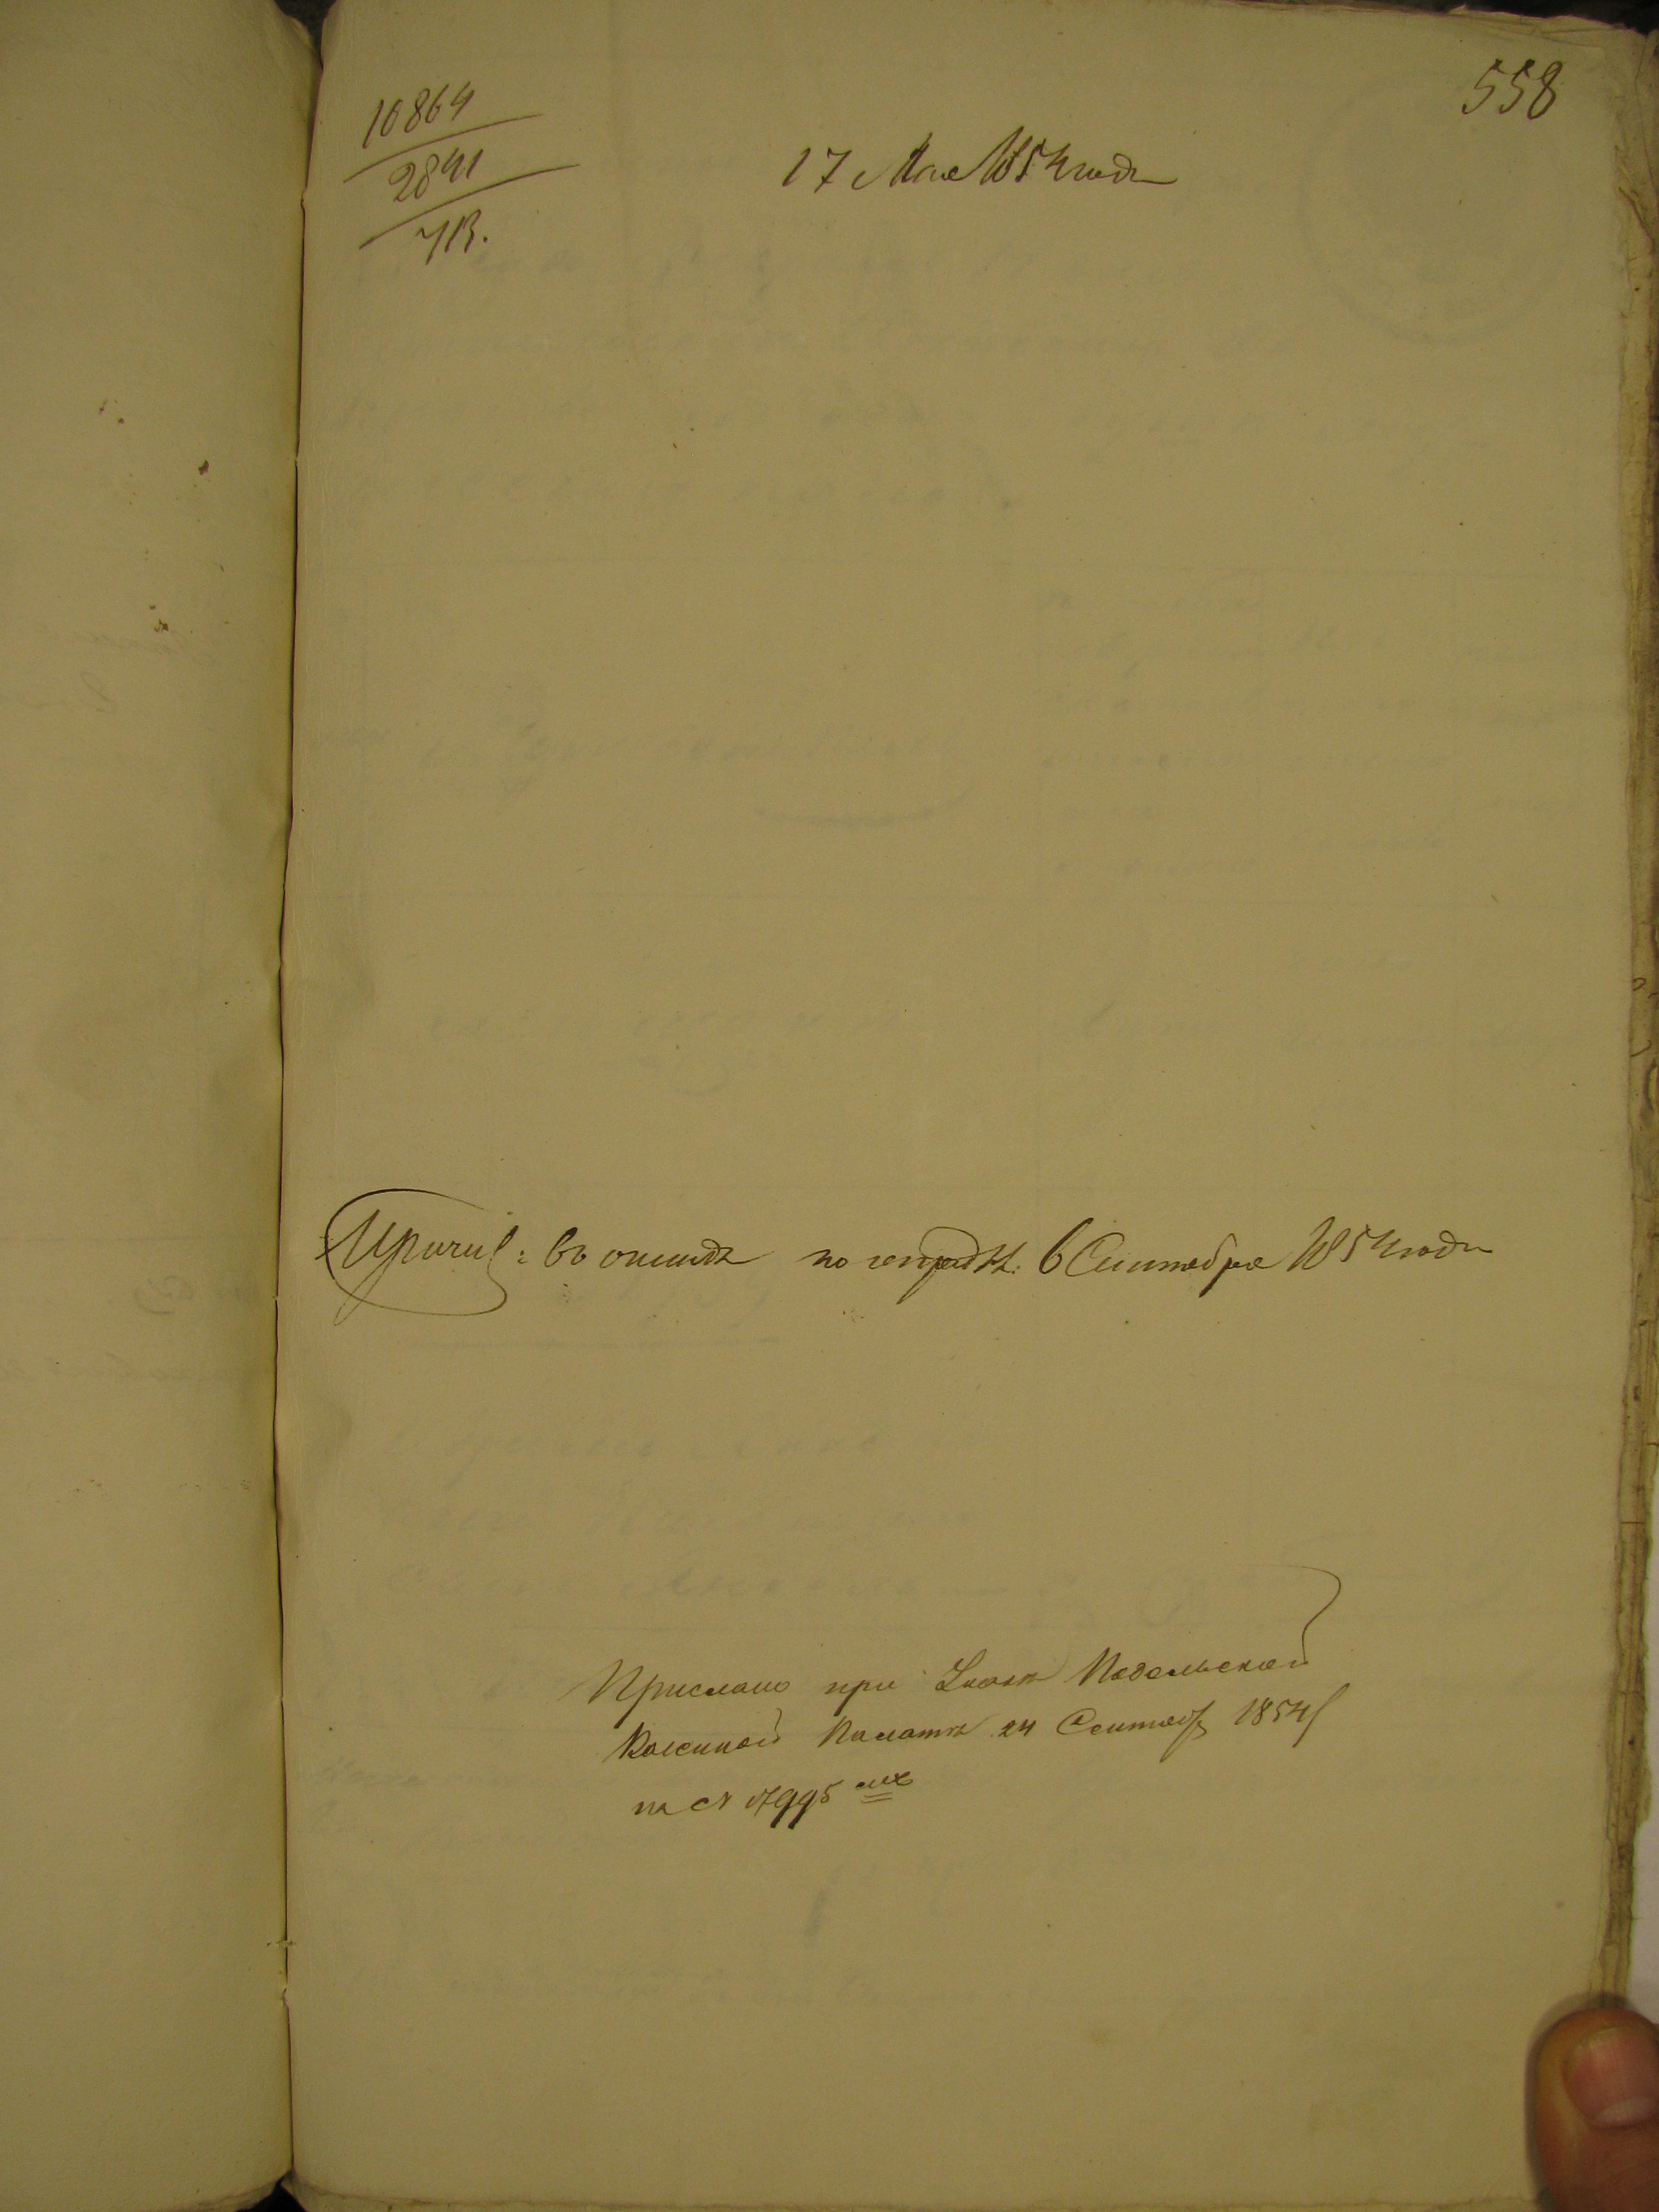 558
10864
2841
713.
17 Мая 1854 года
Причис: въ окладъ по 6 Сентября 1854 года
Прислано при Указѣ Подольской
Казенной Палаты 24 Сентяб 1854
за № 17995